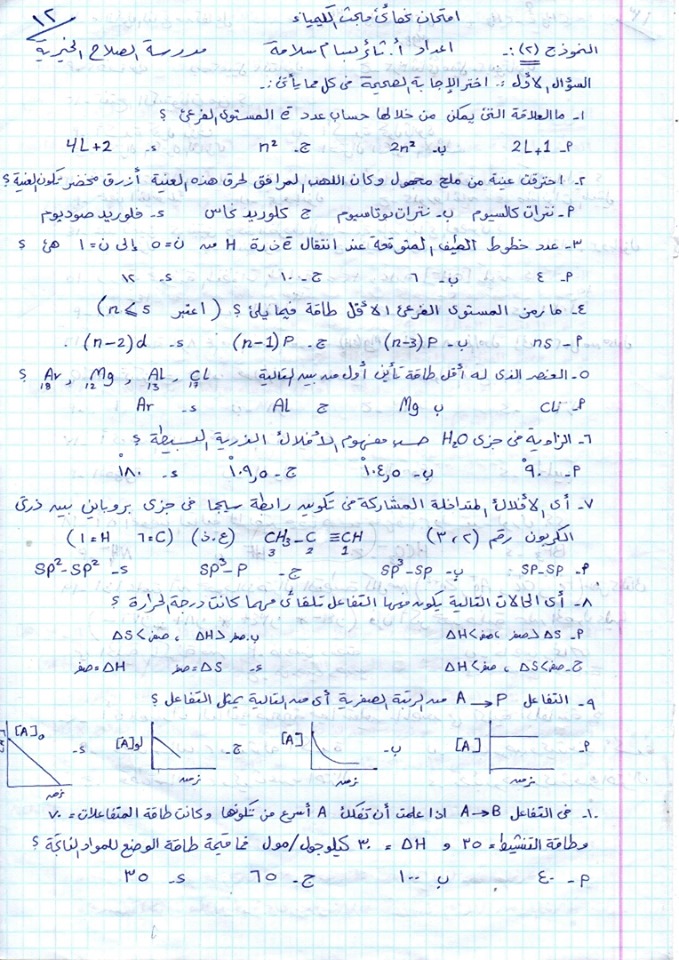 امتحان نهائي مبحث الكيمياء
١٢
النموذج (٢) :- اعداد أ. ثائر بسام سلامة مدرسة الصلاح الخيرية
السؤال الأول :- اختر الإجابة الصحيحة في كل مما يأتي :-
١- ما العلاقة التي يمكن من خلالها حساب عدد e المستوى الفرعي ؟
أ- 2L+1 ب- 2n² ج- n² د- 4L+2
٢- احترقت عينة من ملح مجهول وكان اللهب المرافق لحرق هذه العينة أزرق مخضر تكون العينة ؟
أ- نترات كالسيوم ب- نترات بوتاسيوم ج كلوريد نحاس د- فلوريد صوديوم
٣- عدد خطوط الطيف المتوقعة عند انتقال e ذرة H من ن=٥ إلى ن=١ هي ؟
أ- ٤ ب- ٦ ج- ١٠ د- ١٢
٤- ما رمز المستوى الفرعي الأقل طاقة فيما يلي ؟ (اعتبر n⩽5)
أ- ns ب- (n-3)P ج- (n-1)P د- (n-2)d
٥- العنصر الذي له أقل طاقة تأين أول من بين التالية ₁₇CL , ₁₃AL , ₁₂Mg , ₁₈Ar ؟
أ- CL ب Mg ج AL د- Ar
٦- الزاوية في جزئ H₂O حسب مفهوم الأفلاك الذرية البسيطة ؟
أ- ٩٠° ب- ١٠٤,٥° ج- ١٠٩,٥° د- ١٨٠°
٧- أي الأفلاك المتداخلة المشاركة في تكوين رابطة سيجما في جزئ بروباين بين ذرتي
الكربون رقم (٢،٣) CH₃-C≡CH (ع.ذ) (٦=C ١=H)
3 2 1
أ- SP-SP ب- SP³-SP ج- SP³-P د- SP²-SP²
٨- أي الحالات التالية يكون فيها التفاعل تلقائي مهما كانت درجة الحرارة ؟
أ- ΔS>صفر ، ΔH<صفر ب. ΔH>صفر ، ΔS<صفر
ج- ΔS<صفر ، ΔH<صفر د- ΔS=صفر ΔH=صفر
٩- التفاعل A→P من الرتبة الصفرية أي من التالية يمثل التفاعل ؟
أ- [A] زمن ب- [A] زمن ج- لو[A] زمن د- [A]₀ زمن
١٠- في التفاعل A→B اذا علمت أن تفكك A أسرع من تكونها وكانت طاقة المتفاعلات = ٧٠
وطاقة التنشيط = ٣٥ و ΔH = ٣٠ كيلوجول/مول فما قيمة طاقة الوضع للمواد الناتجة ؟
أ- ٤٠ ب ١٠٠ ج- ٦٥ د- ٣٥